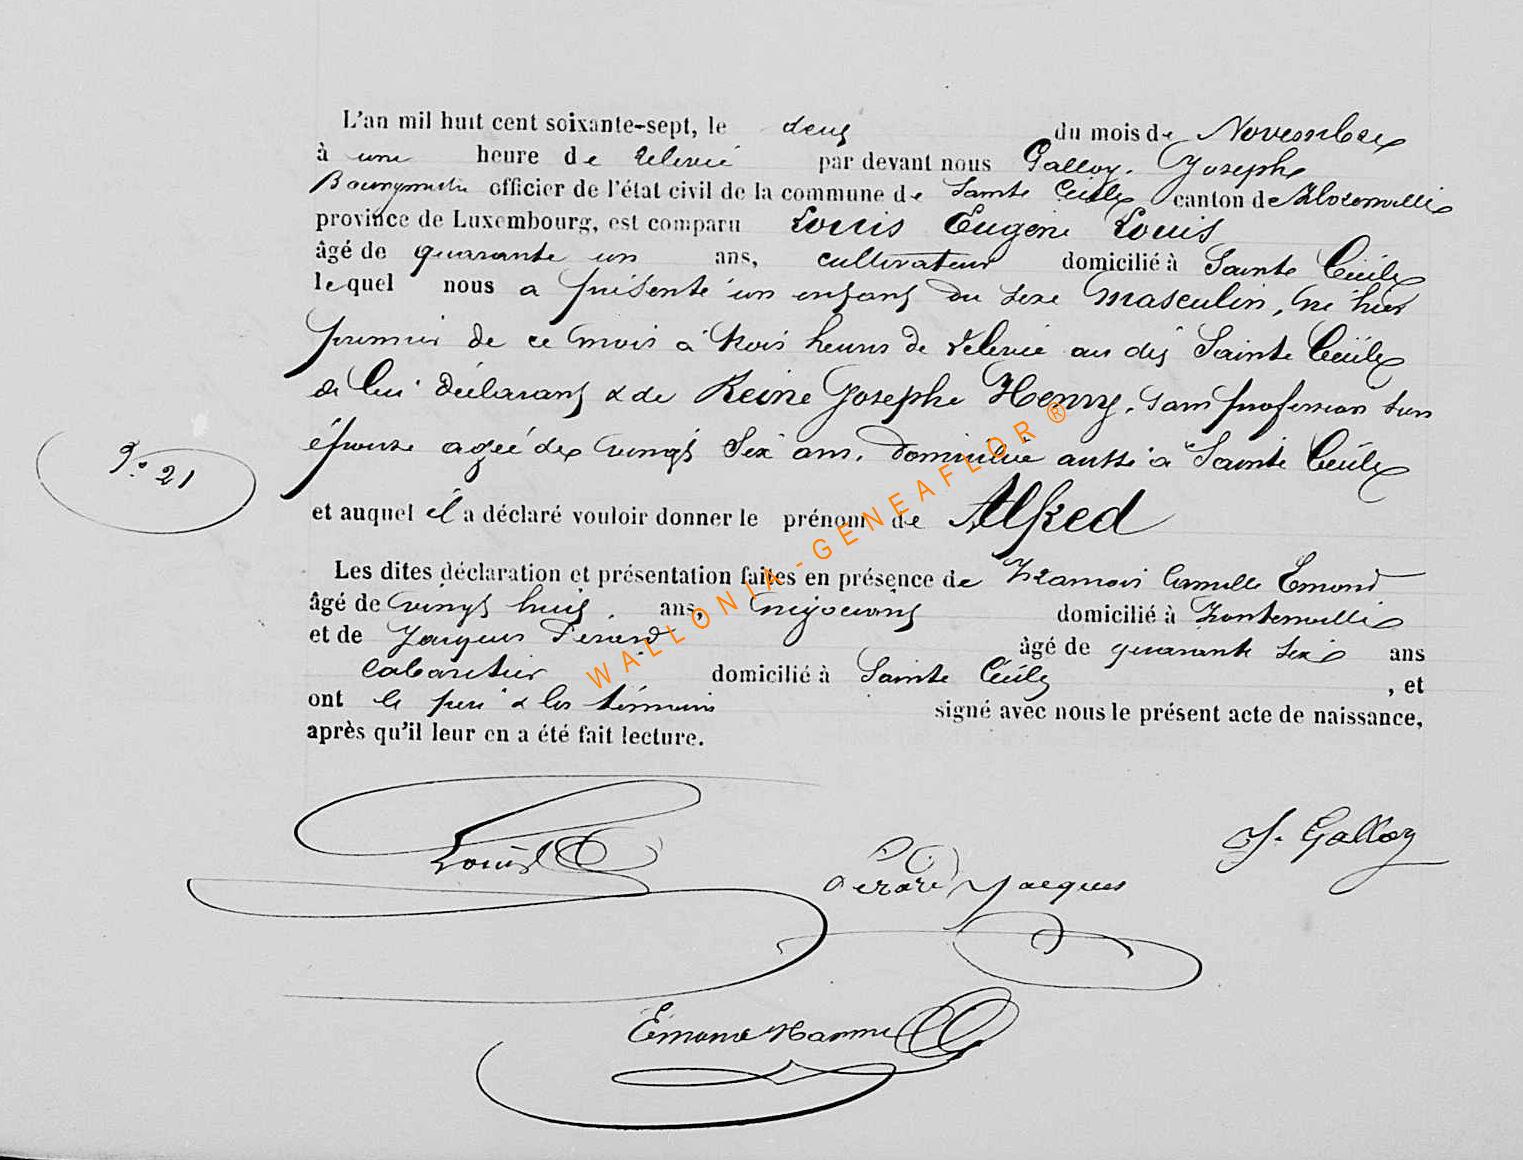 L'an mil huit cent soixante-sept, le deux du mois de Novembre
à une heure de relevée par devant nous Galloy, Josephe
Bourgmestre officier de l'état civil de la commune de Sainte Cécile canton de Florenville
province de Luxembourg, est comparu Louis Eugène Louis
âgé de quarante un ans, cultivateur domicilié à Sainte Cécile
lequel nous a présenté un enfant du sexe masculin, né hier
premier de ce mois à trois heures de relevée au dit Sainte Cécile
de lui déclarant & de Reine Josephe Henry, sans profession son
épouse agée de vingt six ans, domiciliée aussi à Sainte Cécile
No 21
et auquel il a déclaré vouloir donner le prénom de Alfred
Les dites déclaration et présentation faites en présence de François Camille Emond
âgé de vingt huit ans, négociant domicilié à Fontenoille
et de Jacques Pérard âgé de quarante six ans
cabaretier domicilié à Sainte Cécile , et
ont le père & les témoins signé avec nous le présent acte de naissance,
après qu'il leur en a été fait lecture.
WALLONIA-GENEAFLOR ®
J. Galloy
Louis E
Perard Jacques
Emond